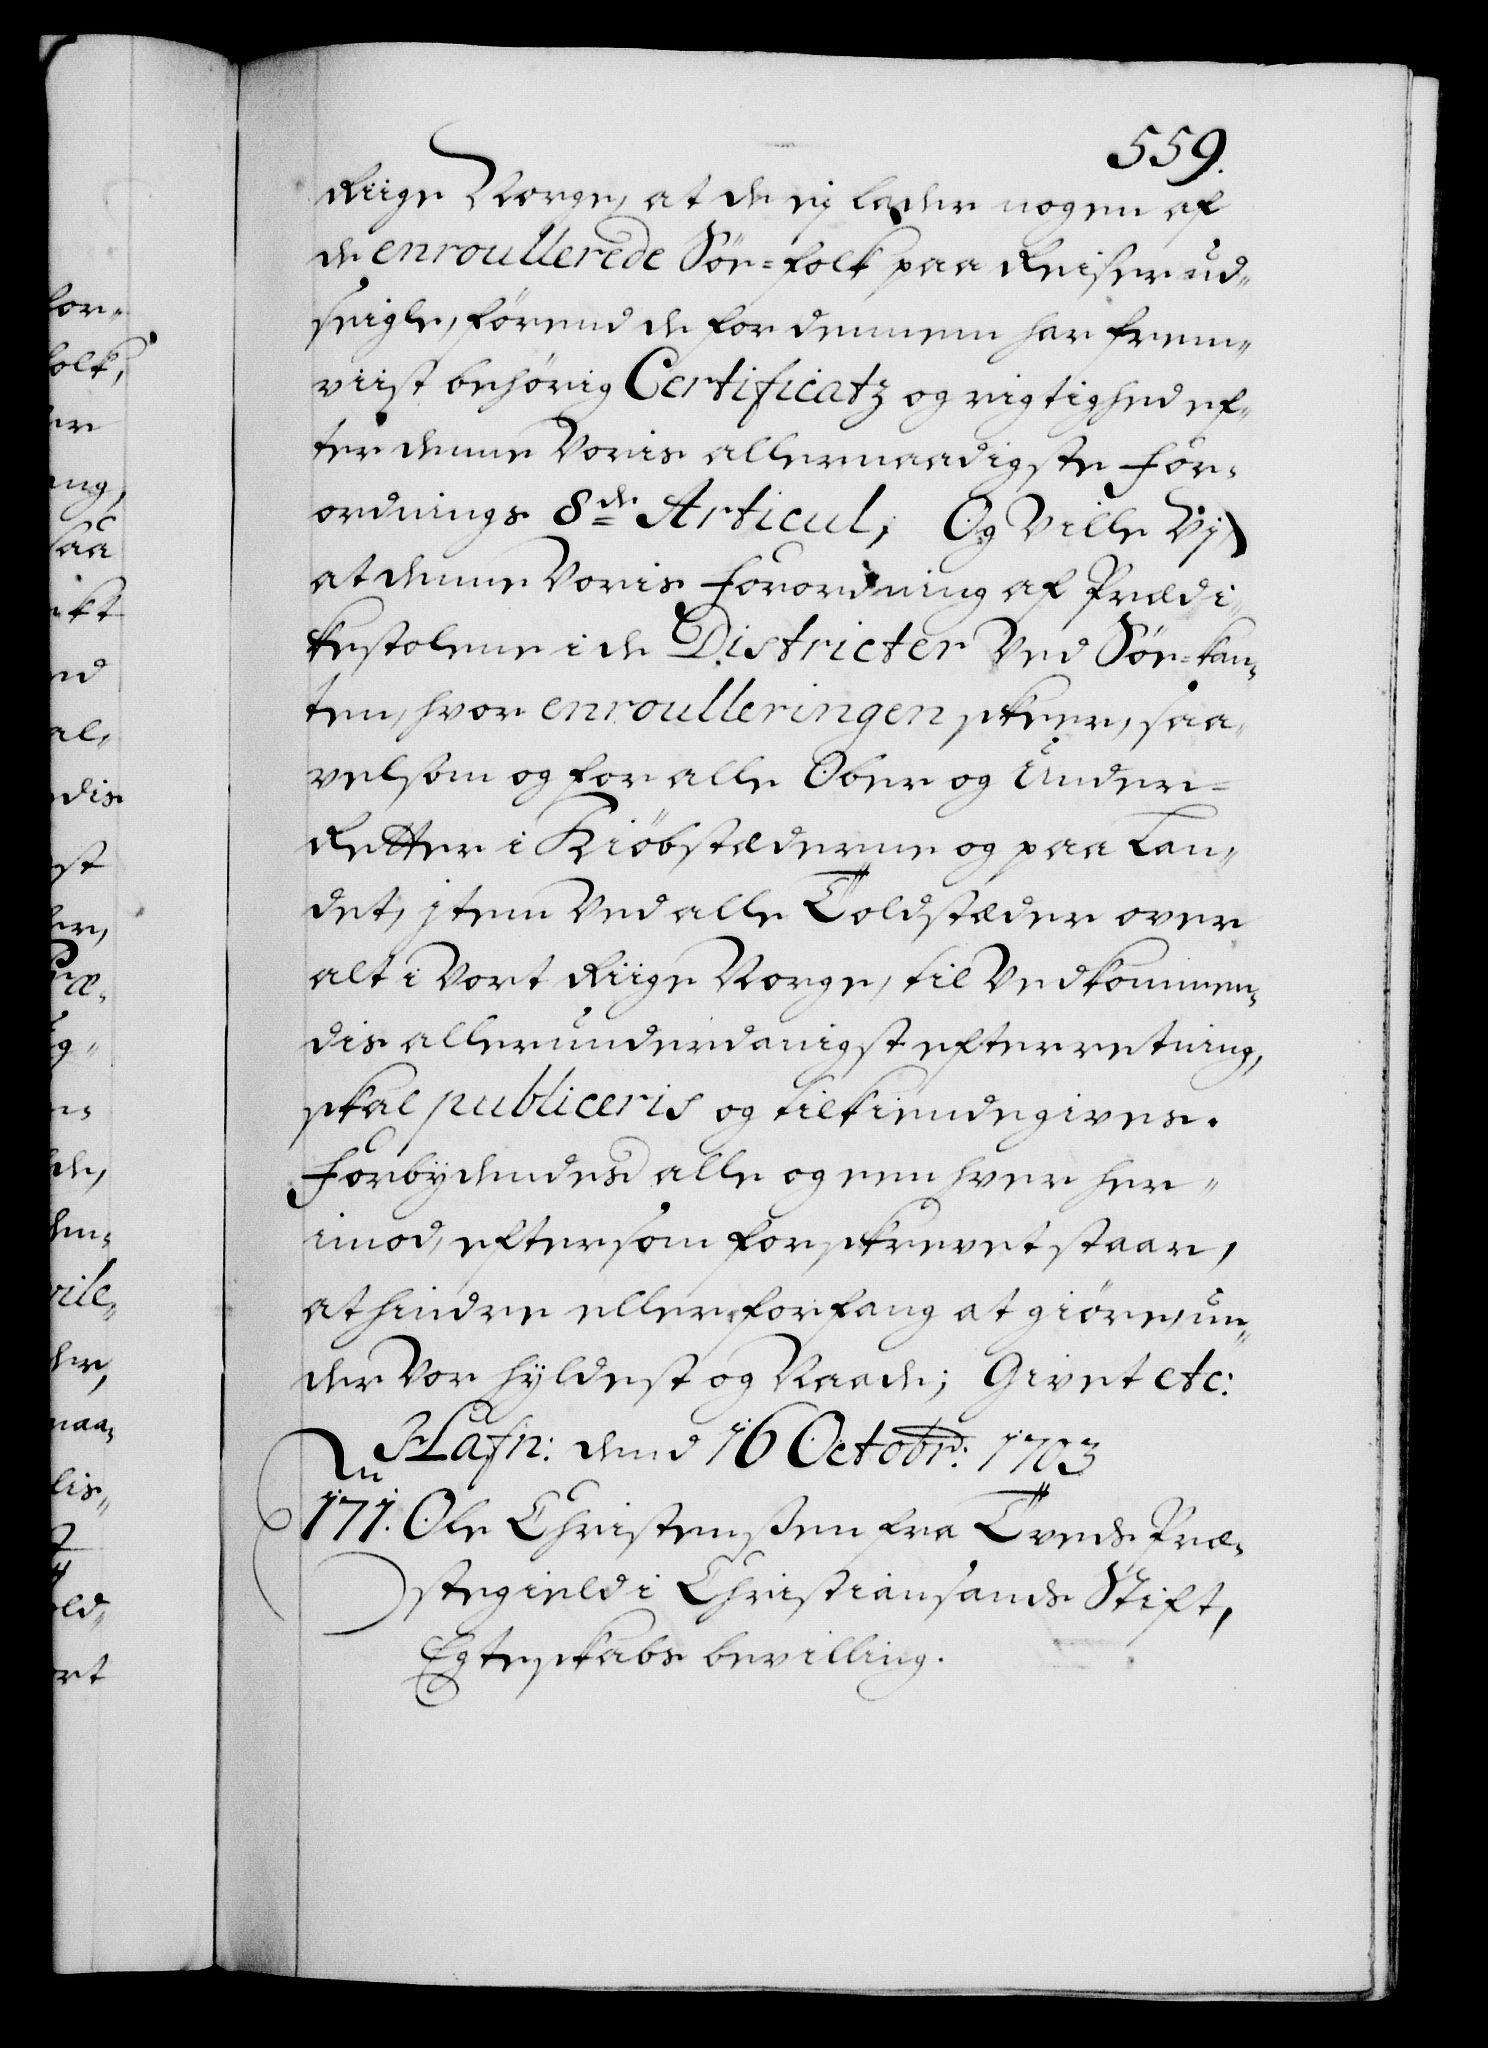 559.
Riige Norge, at de ej lader nogen af
de enroullerede Söe=folk paa Reiser ud-
seigle, förend de for dennem har frem-
viist behörig Certificatz og rigtighed ef-
ter denne Voris allernaadigste For-
ordnings 8de Articul; Og Ville Vj
at denne Voris Forordning af Prædi-
kestolene i de Districter Ved Söe=kan-
ten, hvor enroulleringen skeer, saa-
velsom og for alle Ober og Under=
Retter i Kiöbstæderne og paa Lan-
det, jtem Ved alle Toldstæder over
alt i Vort Riige Norge, til Vedkommen-
dis allerunderdanigst efterretning,
skal publiceris og tilkiendegives.
Forbÿdendes alle og een hver her-
imod, eftersom forskrevet staar,
at hindre eller forfang at giöre, un-
der Vor hÿldest og Naade; Givet etc:
Hafn: dend 16 Octobr: 1703
171. Ole Christensen fra Tveds Præ-
stegield i Christiansands Stift,
Egteskabs bevilling.
for-
folk,
er
ang,
saa
ekt
nd
al-
dis
st
der,
Præ-
g-
n-
de,
hen-
rile-
der,
naa-
lis-
old-
ort